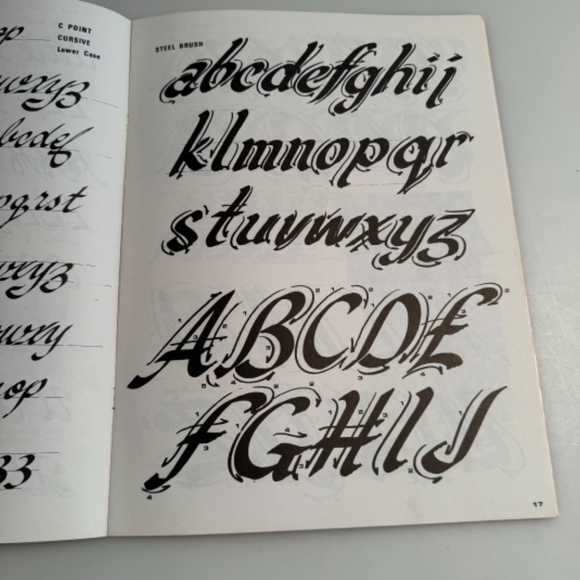 C POINT
CURSIVE
Lower Case
op
wxyz
bcdef
pqrst
wxyz
wxy
nop
33
STEEL BRUSH
abcdefghij
klmnopqr
stuvwxyz
ABCDE
FGHIJ
17